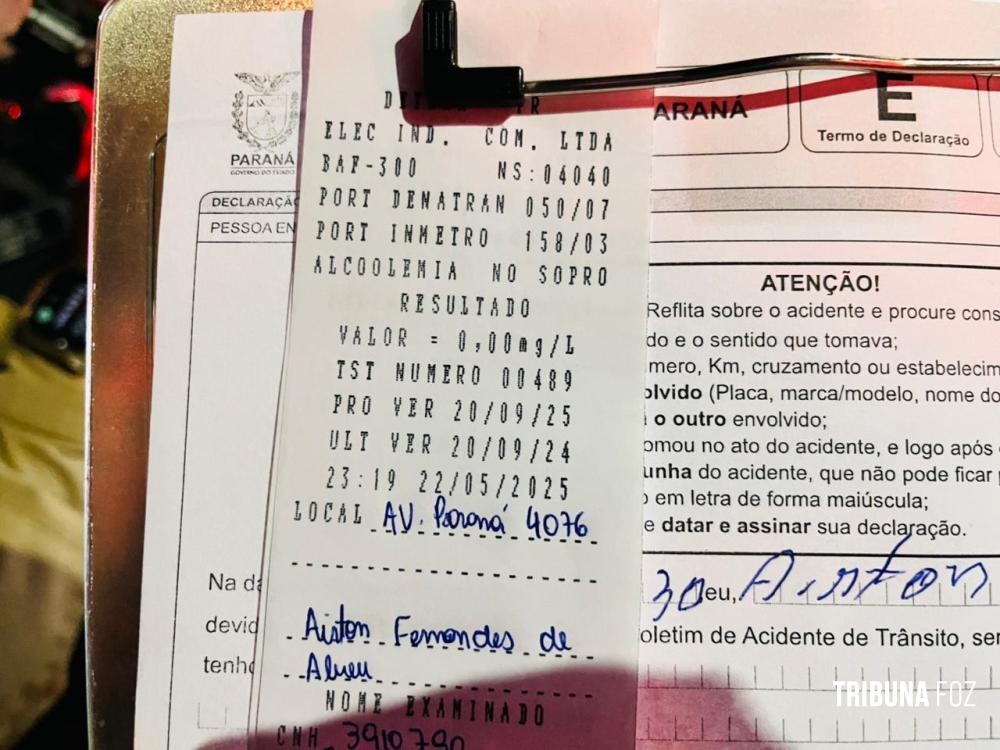 PARANÁ
GOVERNO DO ESTADO
DECLARAÇÃ
PESSOA EN
ELEC IND. COM. LTDA
BAF-300 NS:04040
PORT DENATRAN 050/07
PORT INMETRO 158/03
ALCOOLEMIA NO SOPRO
RESULTADO
VALOR = 0,00mg/L
TST NUMERO 00489
PRO VER 20/09/25
ULT VER 20/09/24
23:19 22/05/2025
LOCAL AV. Paraná 4076
Airton Fernandes de
Abreu
NOME EXAMINADO
CNH 3910790
ARANÁ
E
Termo de Declaração
ATENÇÃO!
Reflita sobre o acidente e procure cons
do e o sentido que tomava;
mero, Km, cruzamento ou estabelecim
olvido (Placa, marca/modelo, nome do
o outro envolvido;
omou no ato do acidente, e logo após
unha do acidente, que não pode ficar
em letra de forma maiúscula;
e datar e assinar sua declaração.
Na da
30 eu, Airton
devid
oletim de Acidente de Trânsito, ser
tenho
TRIBUNA FOZ